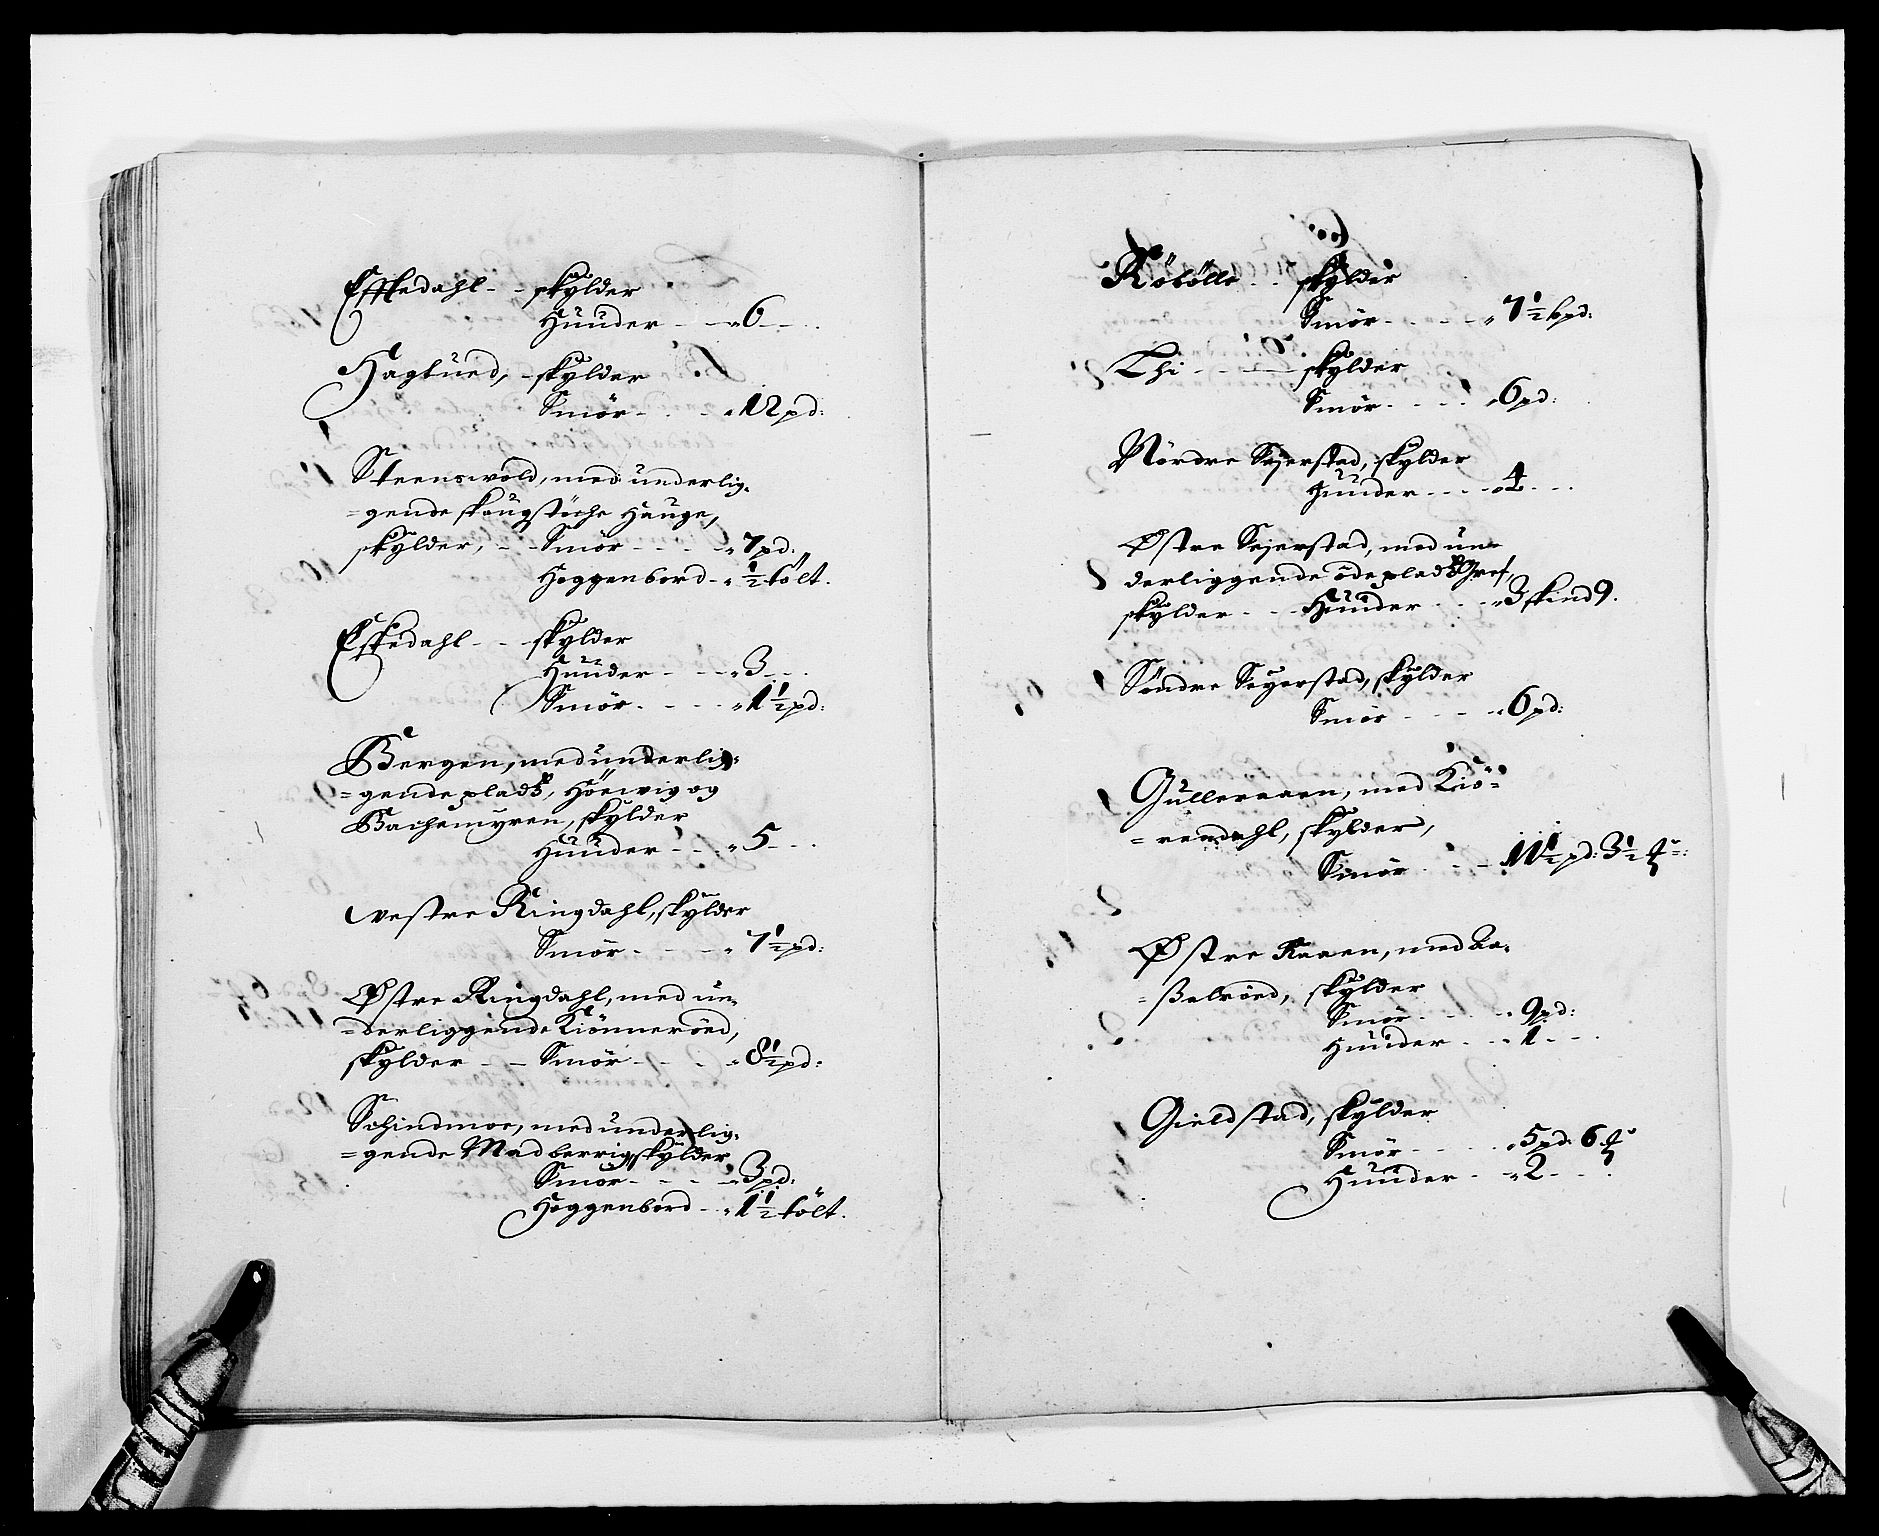 Eskedahl - - skylder
Huuder - - - 6 - - .
Hagtued, - skylder
Smör - - - 12 pd:
Steenswold, med underlig-
=gende skougstöche Hauge,
skylder, - - Smör - - - 7 pd:
Heggenbord - ½ tölt.
Eskedahl - - skylder
Huuder - - - 3 - - .
Smör - - - - 1½ pd:
Bergen, med underlig-
=gende pladz, Höewig og
Bachemyren, skylder
Huuder - - - 5 - - .
westre Ringdahl, skylder
Smör - - - - 7½ pd:
Østre Ringdahl, med un-
=derliggende Kiönneröed,
skylder - - Smör - - - 8½ pd:
Schindmoe, med underlig-
=gende Madberrig, skylder
Smör - - - - 3 pd:
Heggenbord - - 1½ tölt.
Röbölle - - skylder
Smör - - - - 7½ bpd:
Thi - - - - skylder
Smör - - - - 6 pd:
Nördre Sejerstad, skylder
Huuder - - - 4 - - .
Østre Sejerstad, med un-
derliggende öde pladz
skylder - - Huuder - - - 3 skind 9.
Söndre Seyerstad, skylder
Smör - - - - 6 pd:
Gulleraaen, med Kiö-
=rendahl, skylder,
Smör - - - 11½ pd: 3½
Østre Raaen, med La-
=ßelröed, skylder
Smör - - - - 9 pd:
Huuder - - - 1 - - .
Gieldstad, skylder
Smör - - - - 5 pd: 6
Huuder - - 2 - - .